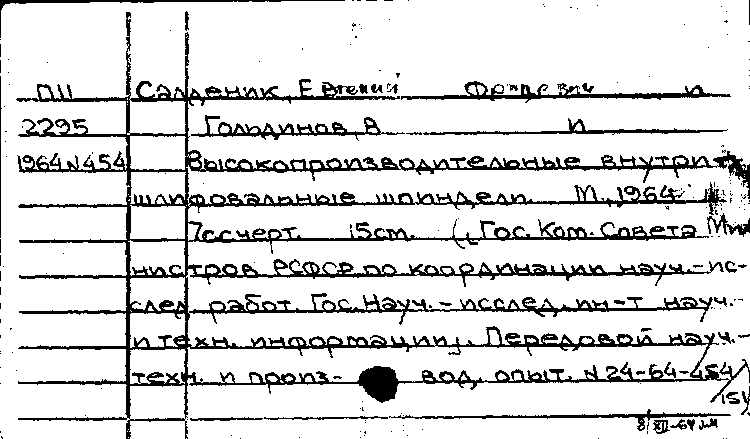 ПЦ Салденик, Евгений и
2295 Гольдинов, В и
1964 N454 Высокопроизводительные внутри-
шлифовальные шпиндели. М., 1964
7с счерт. 15см. (Гос. Ком. Совета Ми-
нистров РСФСР по координации науч.-ис-
след. работ. Гос. Науч.-исслед. ин-т науч.-
и техн. информации). Передовой науч.-
техн. и произ- вод. опыт. N 24-64-454/
151
8/XII-64